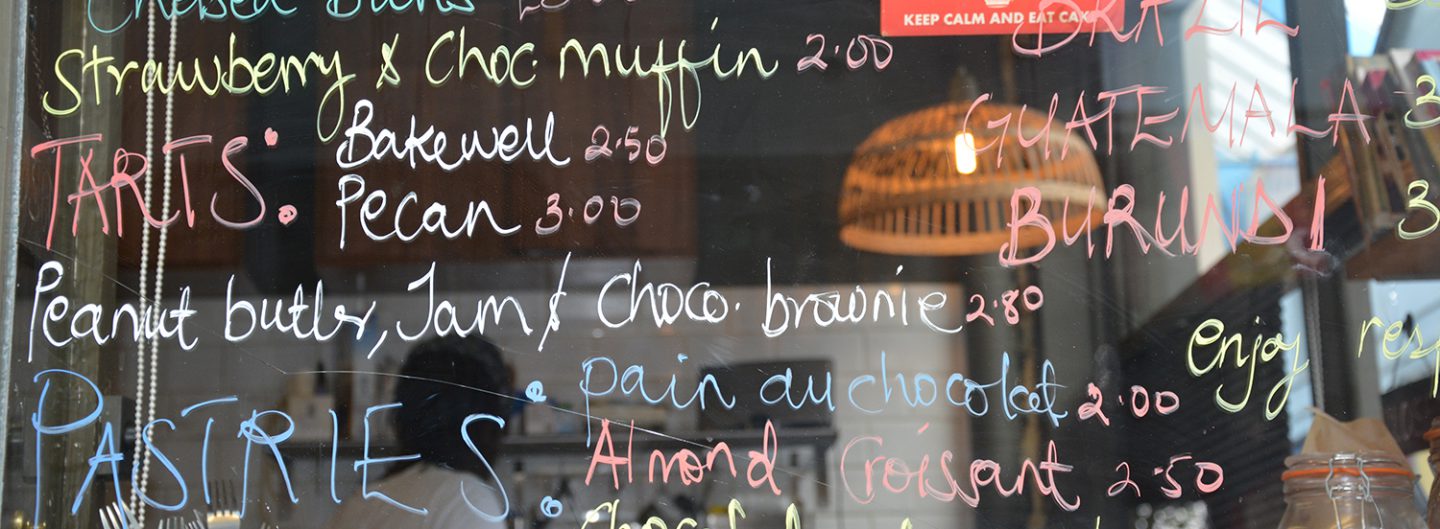 Chelsea Buns
KEEP CALM AND EAT CAKE
Strawberry & Choc. muffin 2.00
TARTS: Bakewell 2.50
Pecan 3.00
Peanut butter, Jam & Choco. brownie 2.80
PASTRIES: pain au chocolat 2.00
: Almond Croissant 2.50
BRAZIL
GUATEMALA 3
BURUNDI 3
enjoy